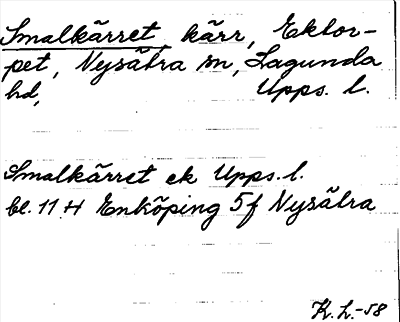 Smalkärret, kärr, Ektor-
pet, Nysätra sn, Lagunda
hd, Upps. l.
Smalkärret ek Upps. l.
bl. 11 H Enköping 5f Nysätra
K. L. -58